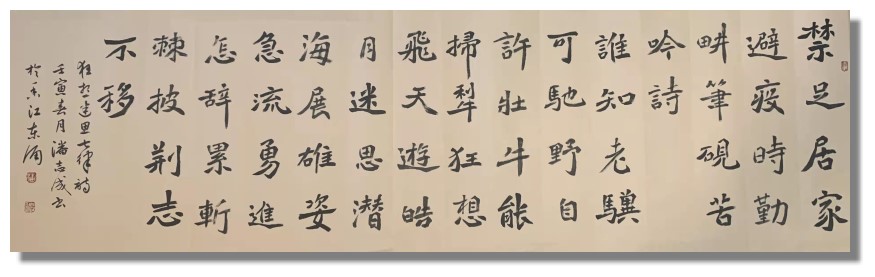 禁足居家
避疫時勤
畊筆硯苦
吟詩
誰知老驥
可馳野自
許壯牛能
掃犁狂想
飛天遊皓
月迷思潛
海展雄姿
急流勇進
怎辞累斬
棘披荆志
不移
狂想迷思七律詩
壬寅春月潘志成书
於香江东涌